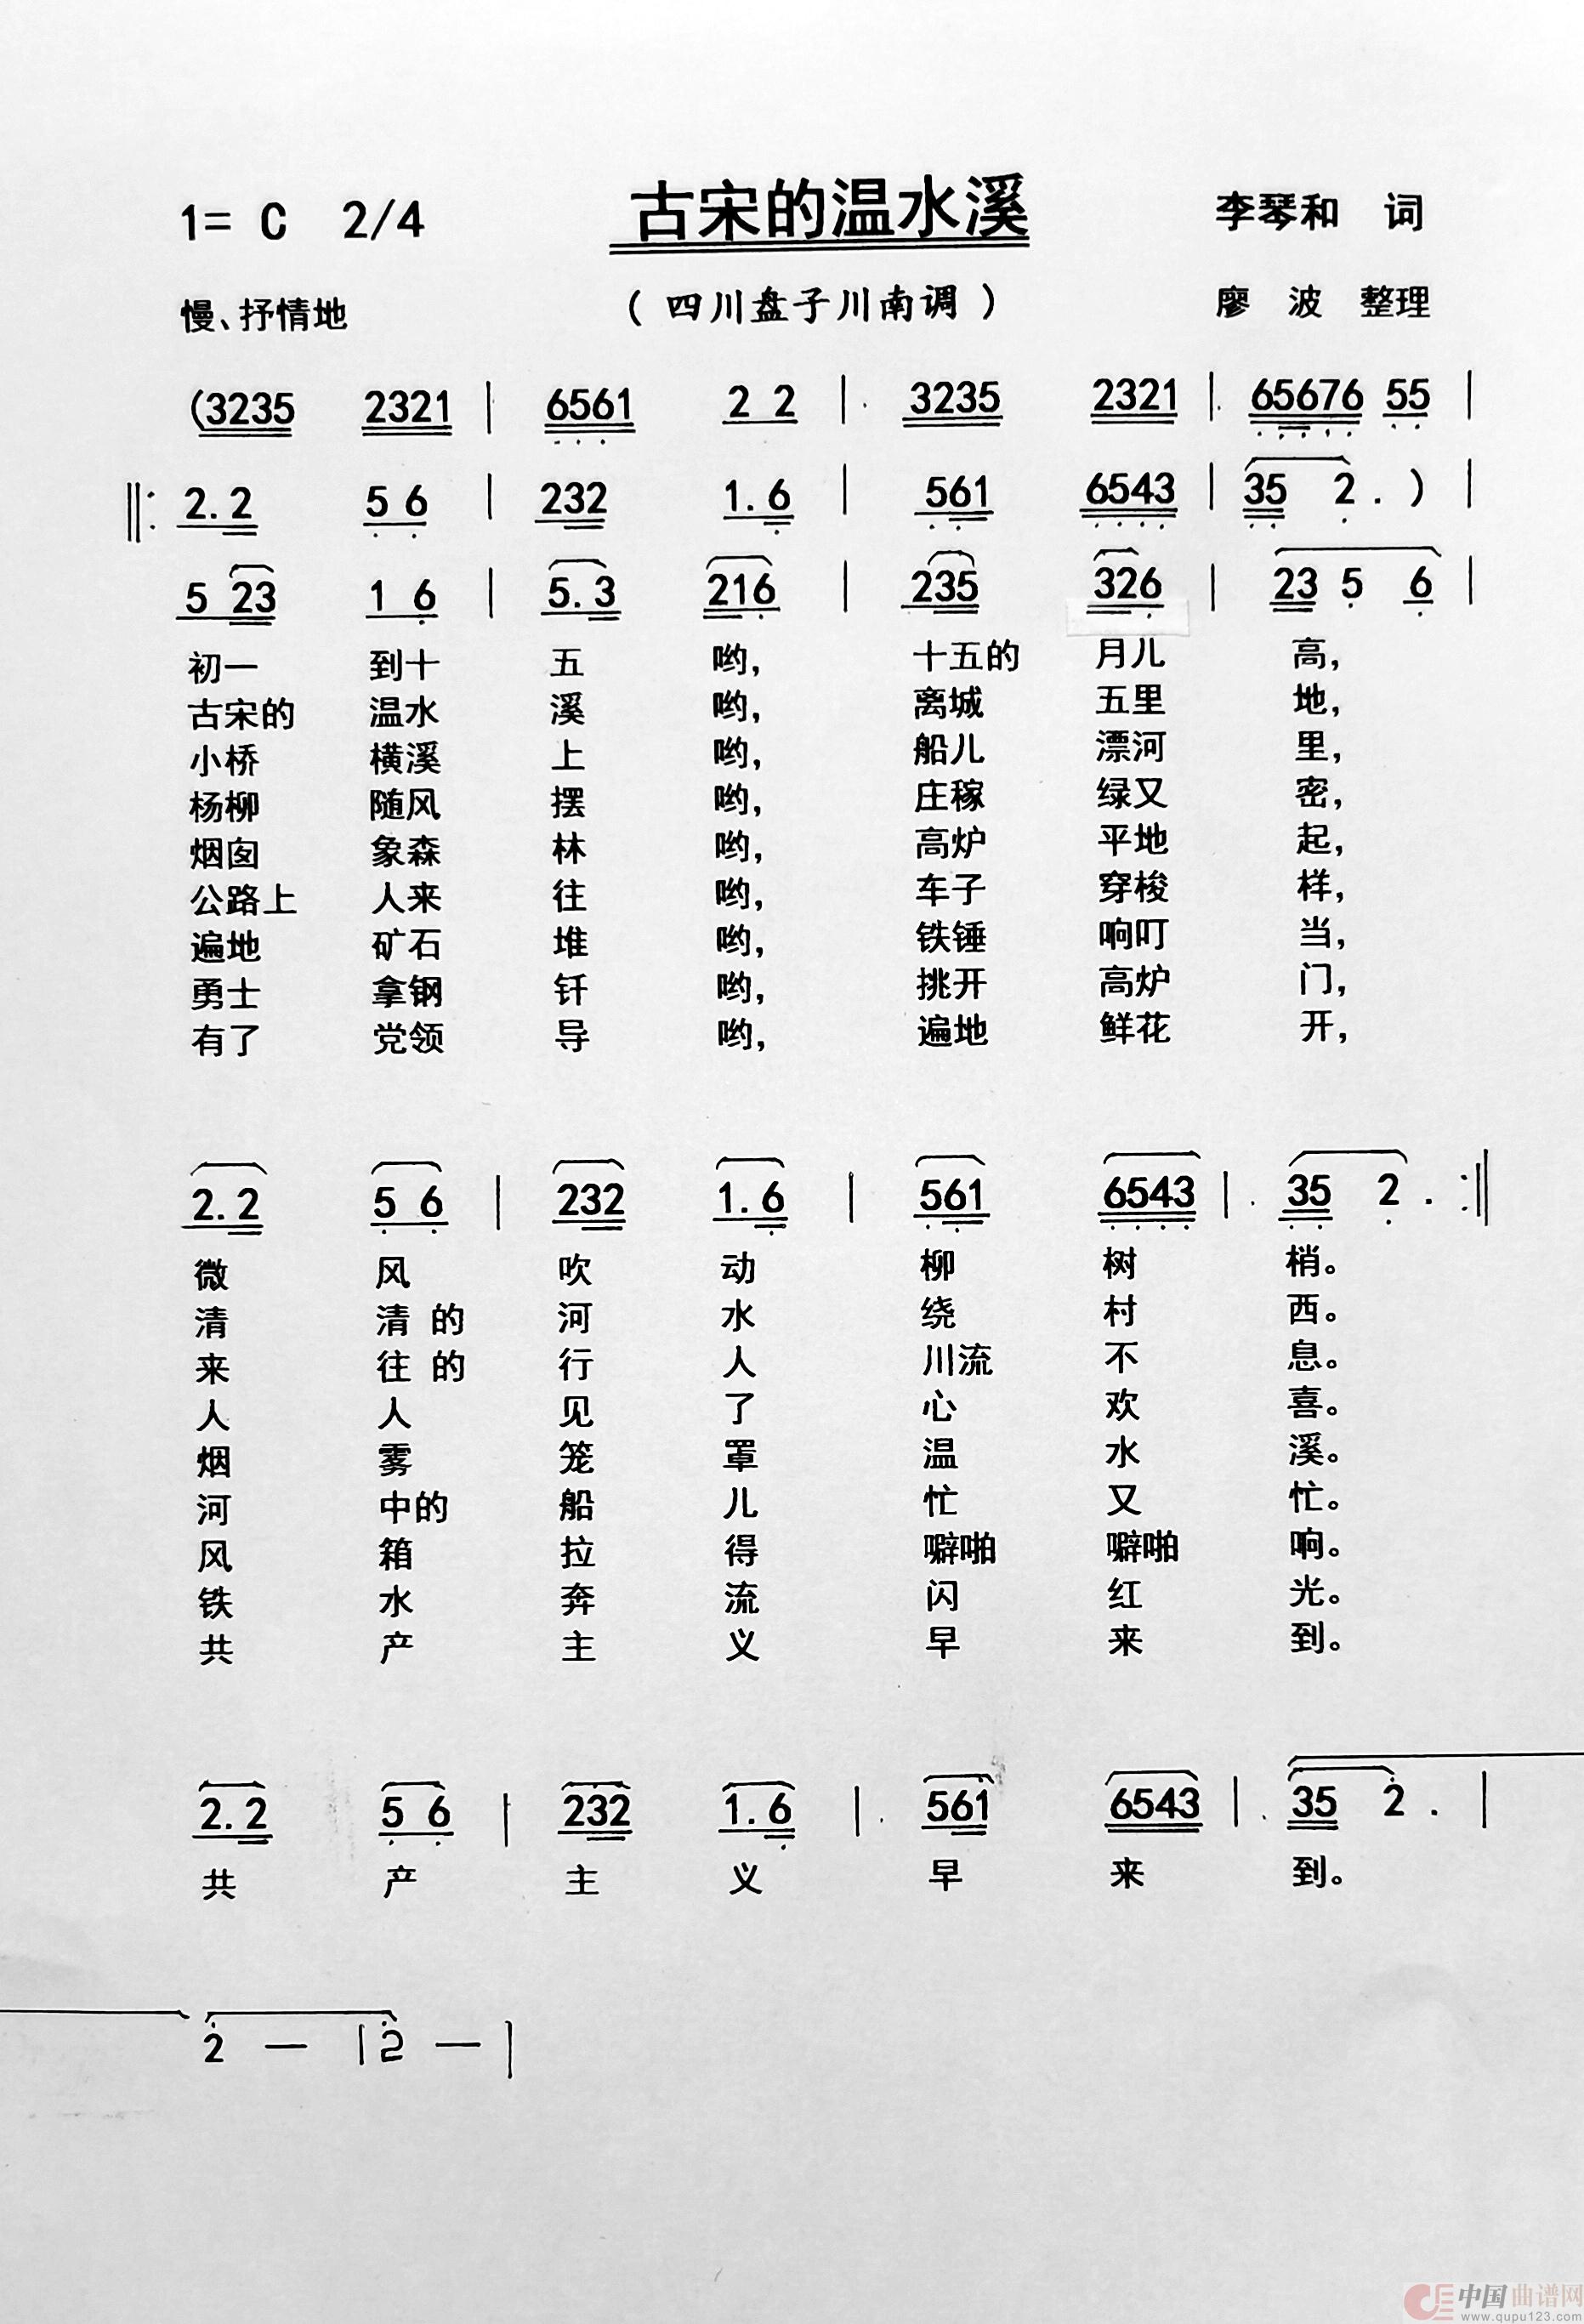 1= C 2/4 古宋的温水溪 李琴和 词
慢、抒情地 (四川盘子川南调) 廖 波 整理
(3235 2321 | 6561 2 2 | 3235 2321 | 65676 55 |
‖: 2.2 5 6 | 232 1.6 | 561 6543 | 35 2 . ) |
5 23 1 6 | 5.3 216 | 235 326 | 23 5 6 |
初一 到十 五 哟, 十五的 月儿 高,
古宋的 温水 溪 哟, 离城 五里 地,
小桥 横溪 上 哟, 船儿 漂河 里,
杨柳 随风 摆 哟, 庄稼 绿又 密,
烟囱 象森 林 哟, 高炉 平地 起,
公路上 人来 往 哟, 车子 穿梭 样,
遍地 矿石 堆 哟, 铁锤 响叮 当,
勇士 拿钢 钎 哟, 挑开 高炉 门,
有了 党领 导 哟, 遍地 鲜花 开,
2.2 5 6 | 232 1.6 | 561 6543 | 35 2 . :‖
微 风 吹 动 柳 树 梢。
清 清 的 河 水 绕 村 西。
来 往 的 行 人 川流 不 息。
人 人 见 了 心 欢 喜。
烟 雾 笼 罩 温 水 溪。
河 中的 船 儿 忙 又 忙。
风 箱 拉 得 噼啪 噼啪 响。
铁 水 奔 流 闪 红 光。
共 产 主 义 早 来 到。
2.2 5 6 | 232 1.6 | 561 6543 | 35 2 . |
共 产 主 义 早 来 到。
2 — | 2 — |
中国曲谱网
www.qupu123.com